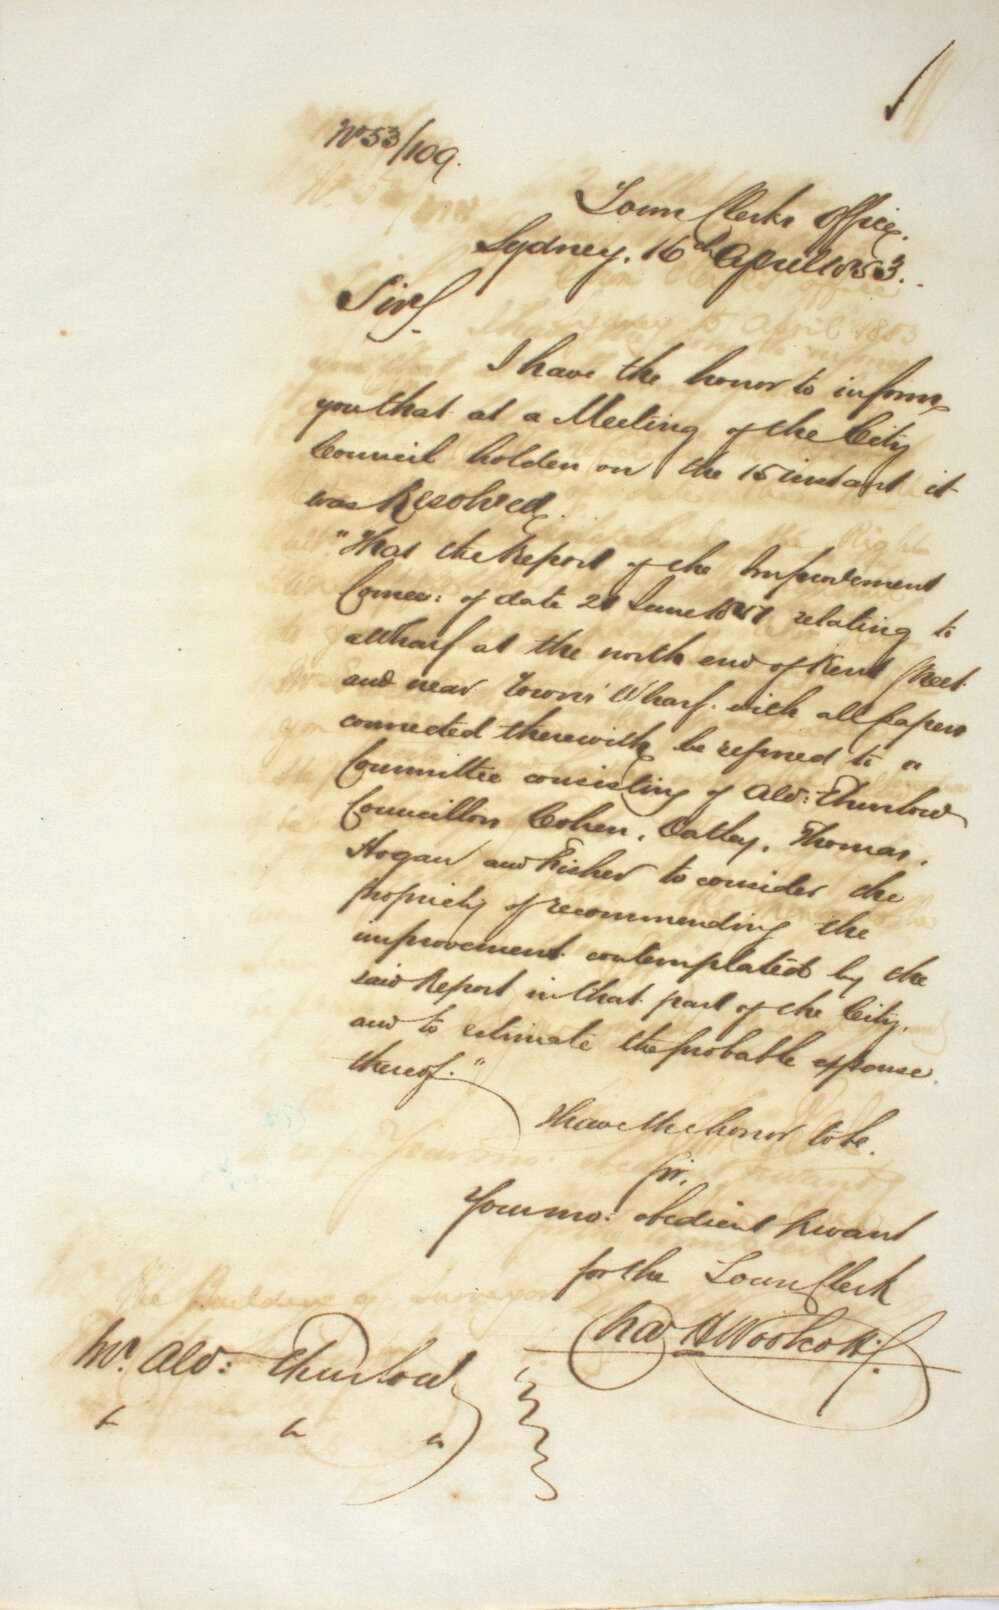 No 53/109.
Town Clerks Office.
Sydney. 16th April 1853.
Sir,
I have the honor to inform
you that at a Meeting of the City
Council holden on the 15 instant it
was Resolved.
"That the Report of the Improvement
Comee: of date 21 June 1851 relating to
a Wharf at the north end of Kent Street
and near Towns' Wharf. with all papers
connected therewith be referred to a
Committee consisting of Ald: Thurlow
Councillors Cohen, Oatley, Thomas,
Hogan and Fisher to consider the
propriety of recommending the
improvement contemplated by the
said Report in that part of the City.
and to estimate the probable expense
thereof."
I have the honor to be.
Sir.
Your mo: obedient Servant
for the Town Clerk
Chas H Woolcott.
Mr. Ald: Thurlow
" " "